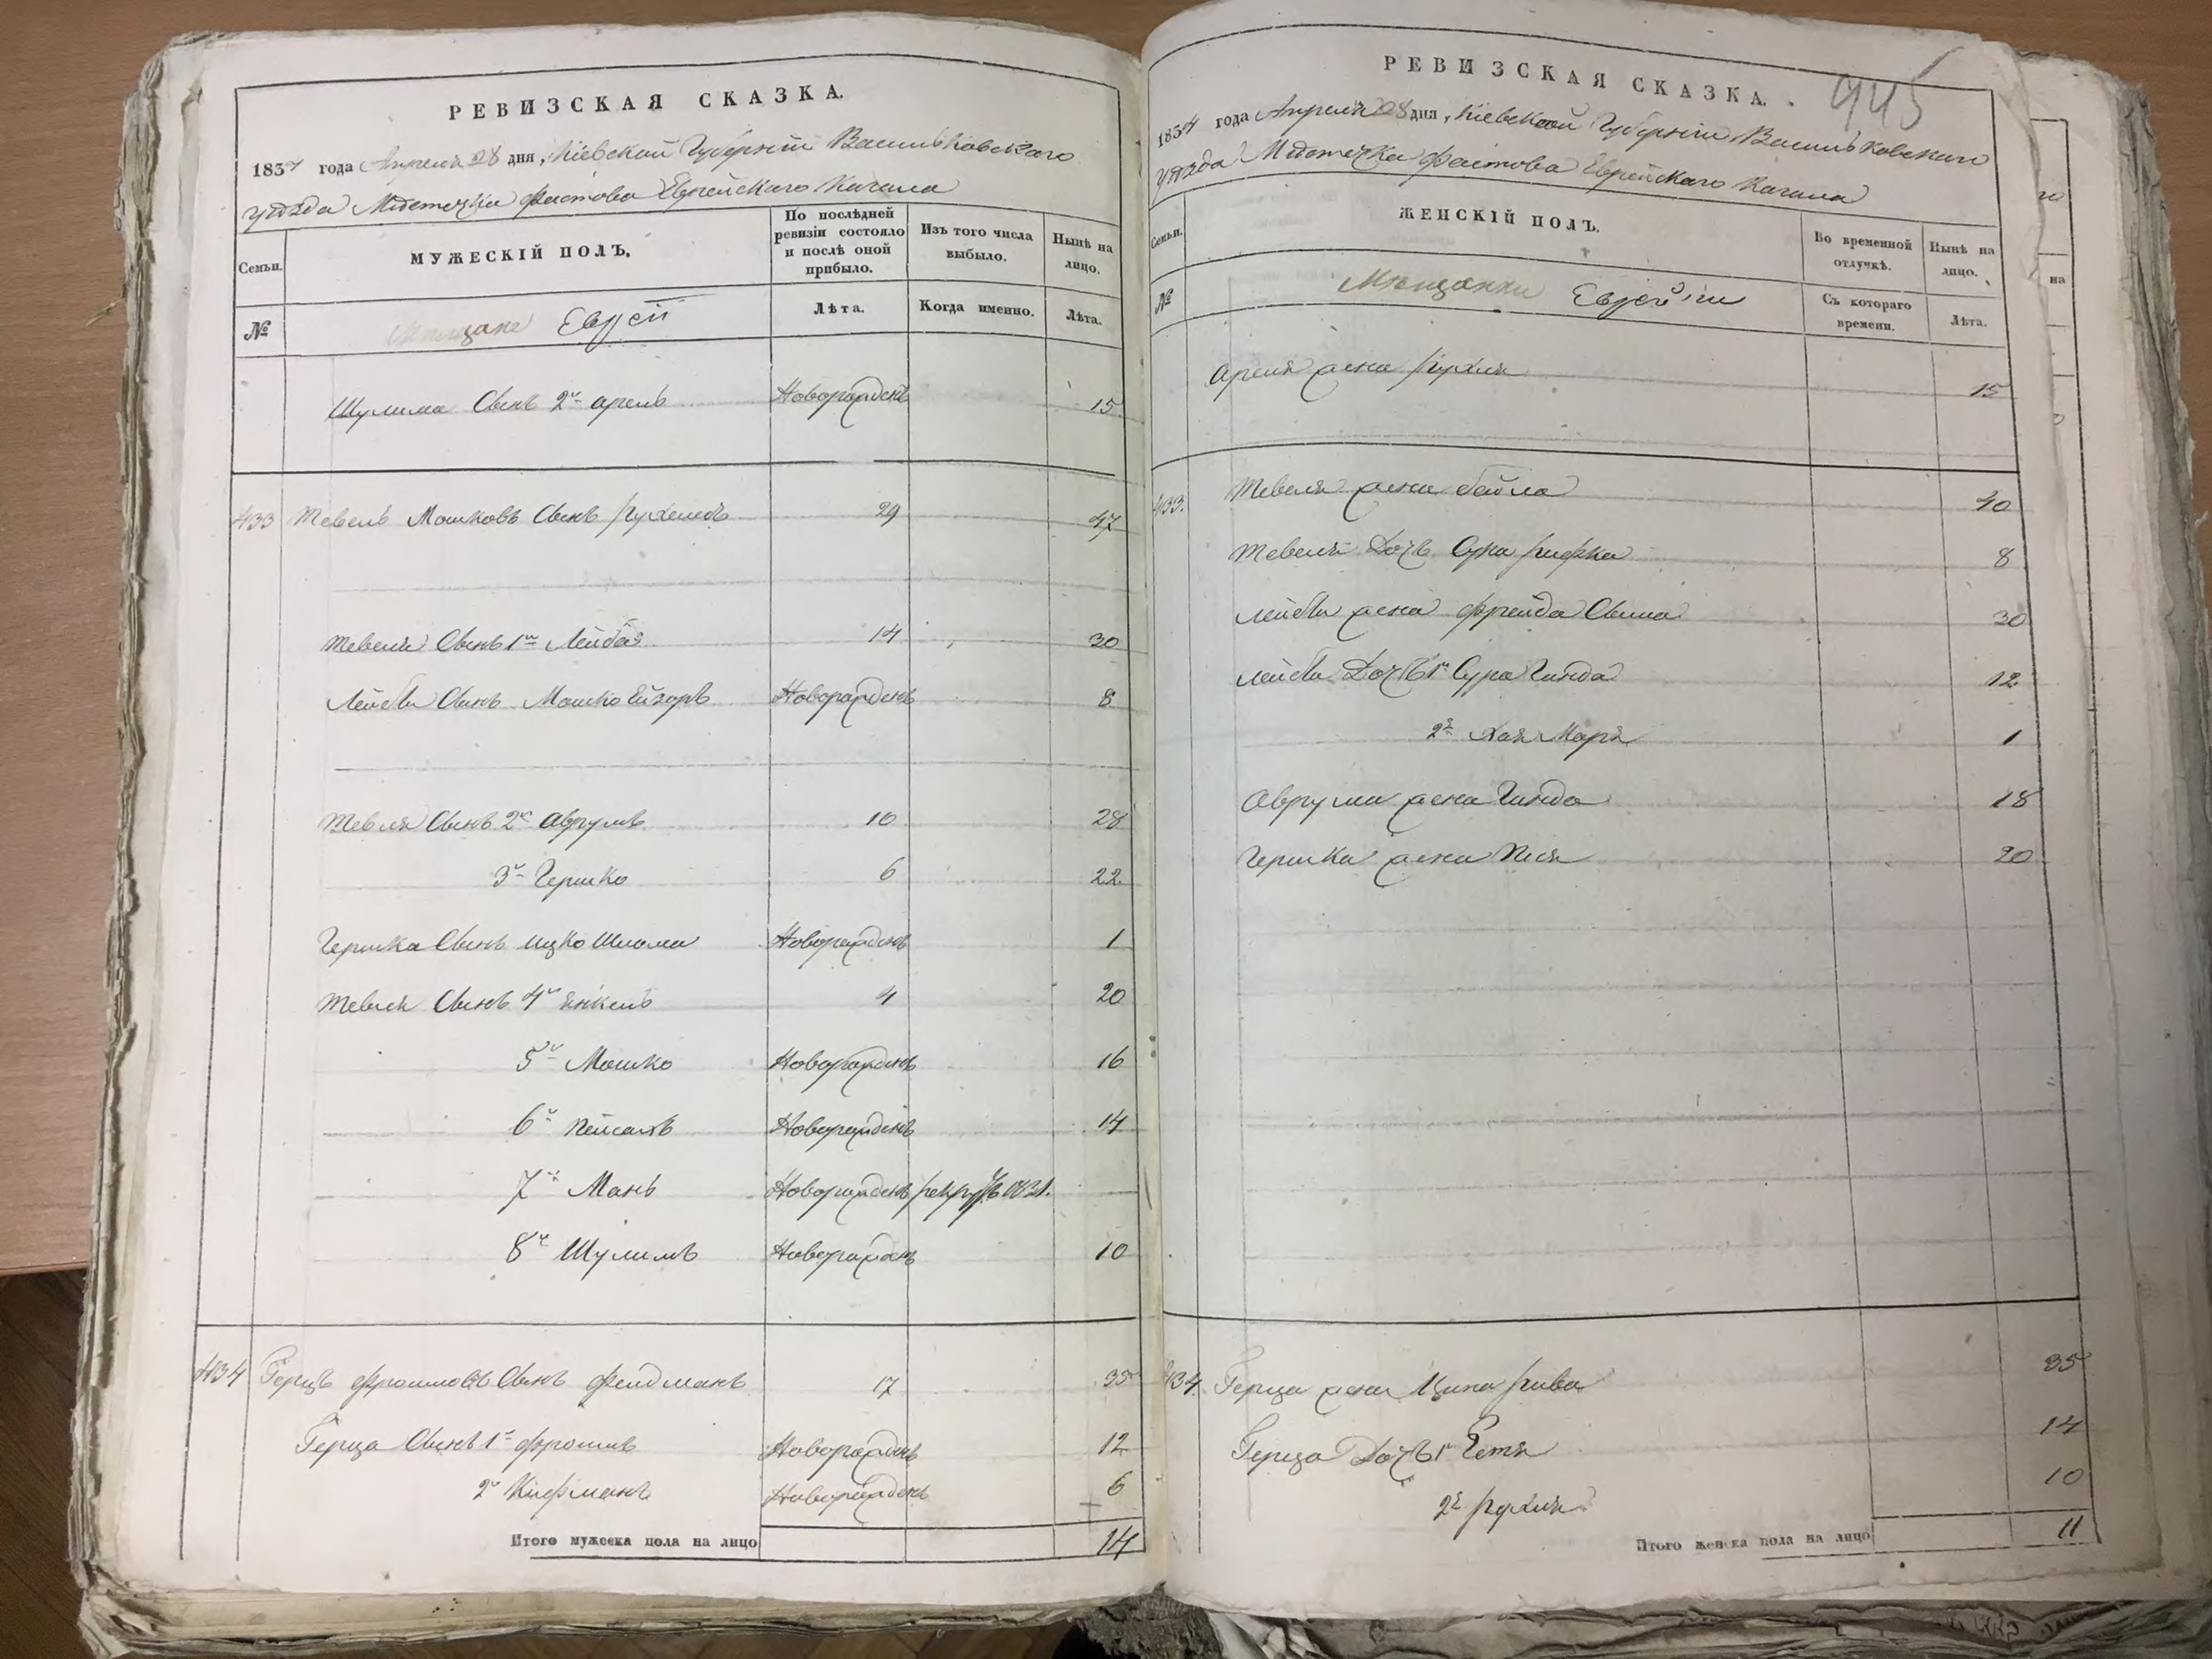 РЕВИЗСКАЯ СКАЗКА.
1834 года Апреля 28 дня, Кіевской Губерніи Васильковскаго
уѣзда Мѣстечка Фастова Еврейскаго Кагала
Семьи.
МУЖЕСКІЙ ПОЛЪ.
По послѣдней ревизіи состояло и послѣ оной прибыло.
Изъ того числа выбыло.
Нынѣ на лицо.
№
Мѣщане Евреи
Лѣта.
Когда именно.
Лѣта.
Шулима Сынъ 2й Арель Новорожденъ 15
433 Тевель Мошковъ Сынъ 29 47
Тевеля Сынъ 1й Лейба 14 30
Лейбы Сынъ Мошко Новорожденъ 8
Тевля Сынъ 2й Аврумъ 10 28
3й Гершко 6 22
Гершка Сынъ Ицко Шлома Новорожденъ 1
Тевля Сынъ 4й Янкель 4 20
5й Мошко Новорожденъ 16
6й Пейсахъ Новорожденъ 14
7й Мань Новорожденъ рекрутъ
8й Шулимъ Новорожденъ 10
434 Герцъ Фроимовъ Сынъ Фелдманъ 17 35
Герца Сынъ 1й Фроимъ Новорожденъ 12
2й Новорожденъ 6
Итого мужеска пола на лицо 14
945
РЕВИЗСКАЯ СКАЗКА.
1834 года Апреля 28 дня, Кіевской Губерніи Васильковскаго
уѣзда Мѣстечка Фастова Еврейскаго Кагала
Семьи.
ЖЕНСКІЙ ПОЛЪ.
Во временной отлучкѣ.
Нынѣ на лицо.
№
Мѣщанки Еврейки
Съ котораго времени.
Лѣта.
Ареля жена Рухля 15
433. Тевеля жена Бейла 40
Тевеля Дочь Сура Рифка 8
Лейбы жена Фрейда Сима 30
Лейбы Дочь 1я Сура Гинда 12
2я Хая Маря 1
Аврума жена Гинда 18
Гершка жена Песя 20
434. Герца жена Ципа Рива 35
Герца Дочь 1я Гетя 14
2я Рухля 10
Итого женска пола на лицо 11